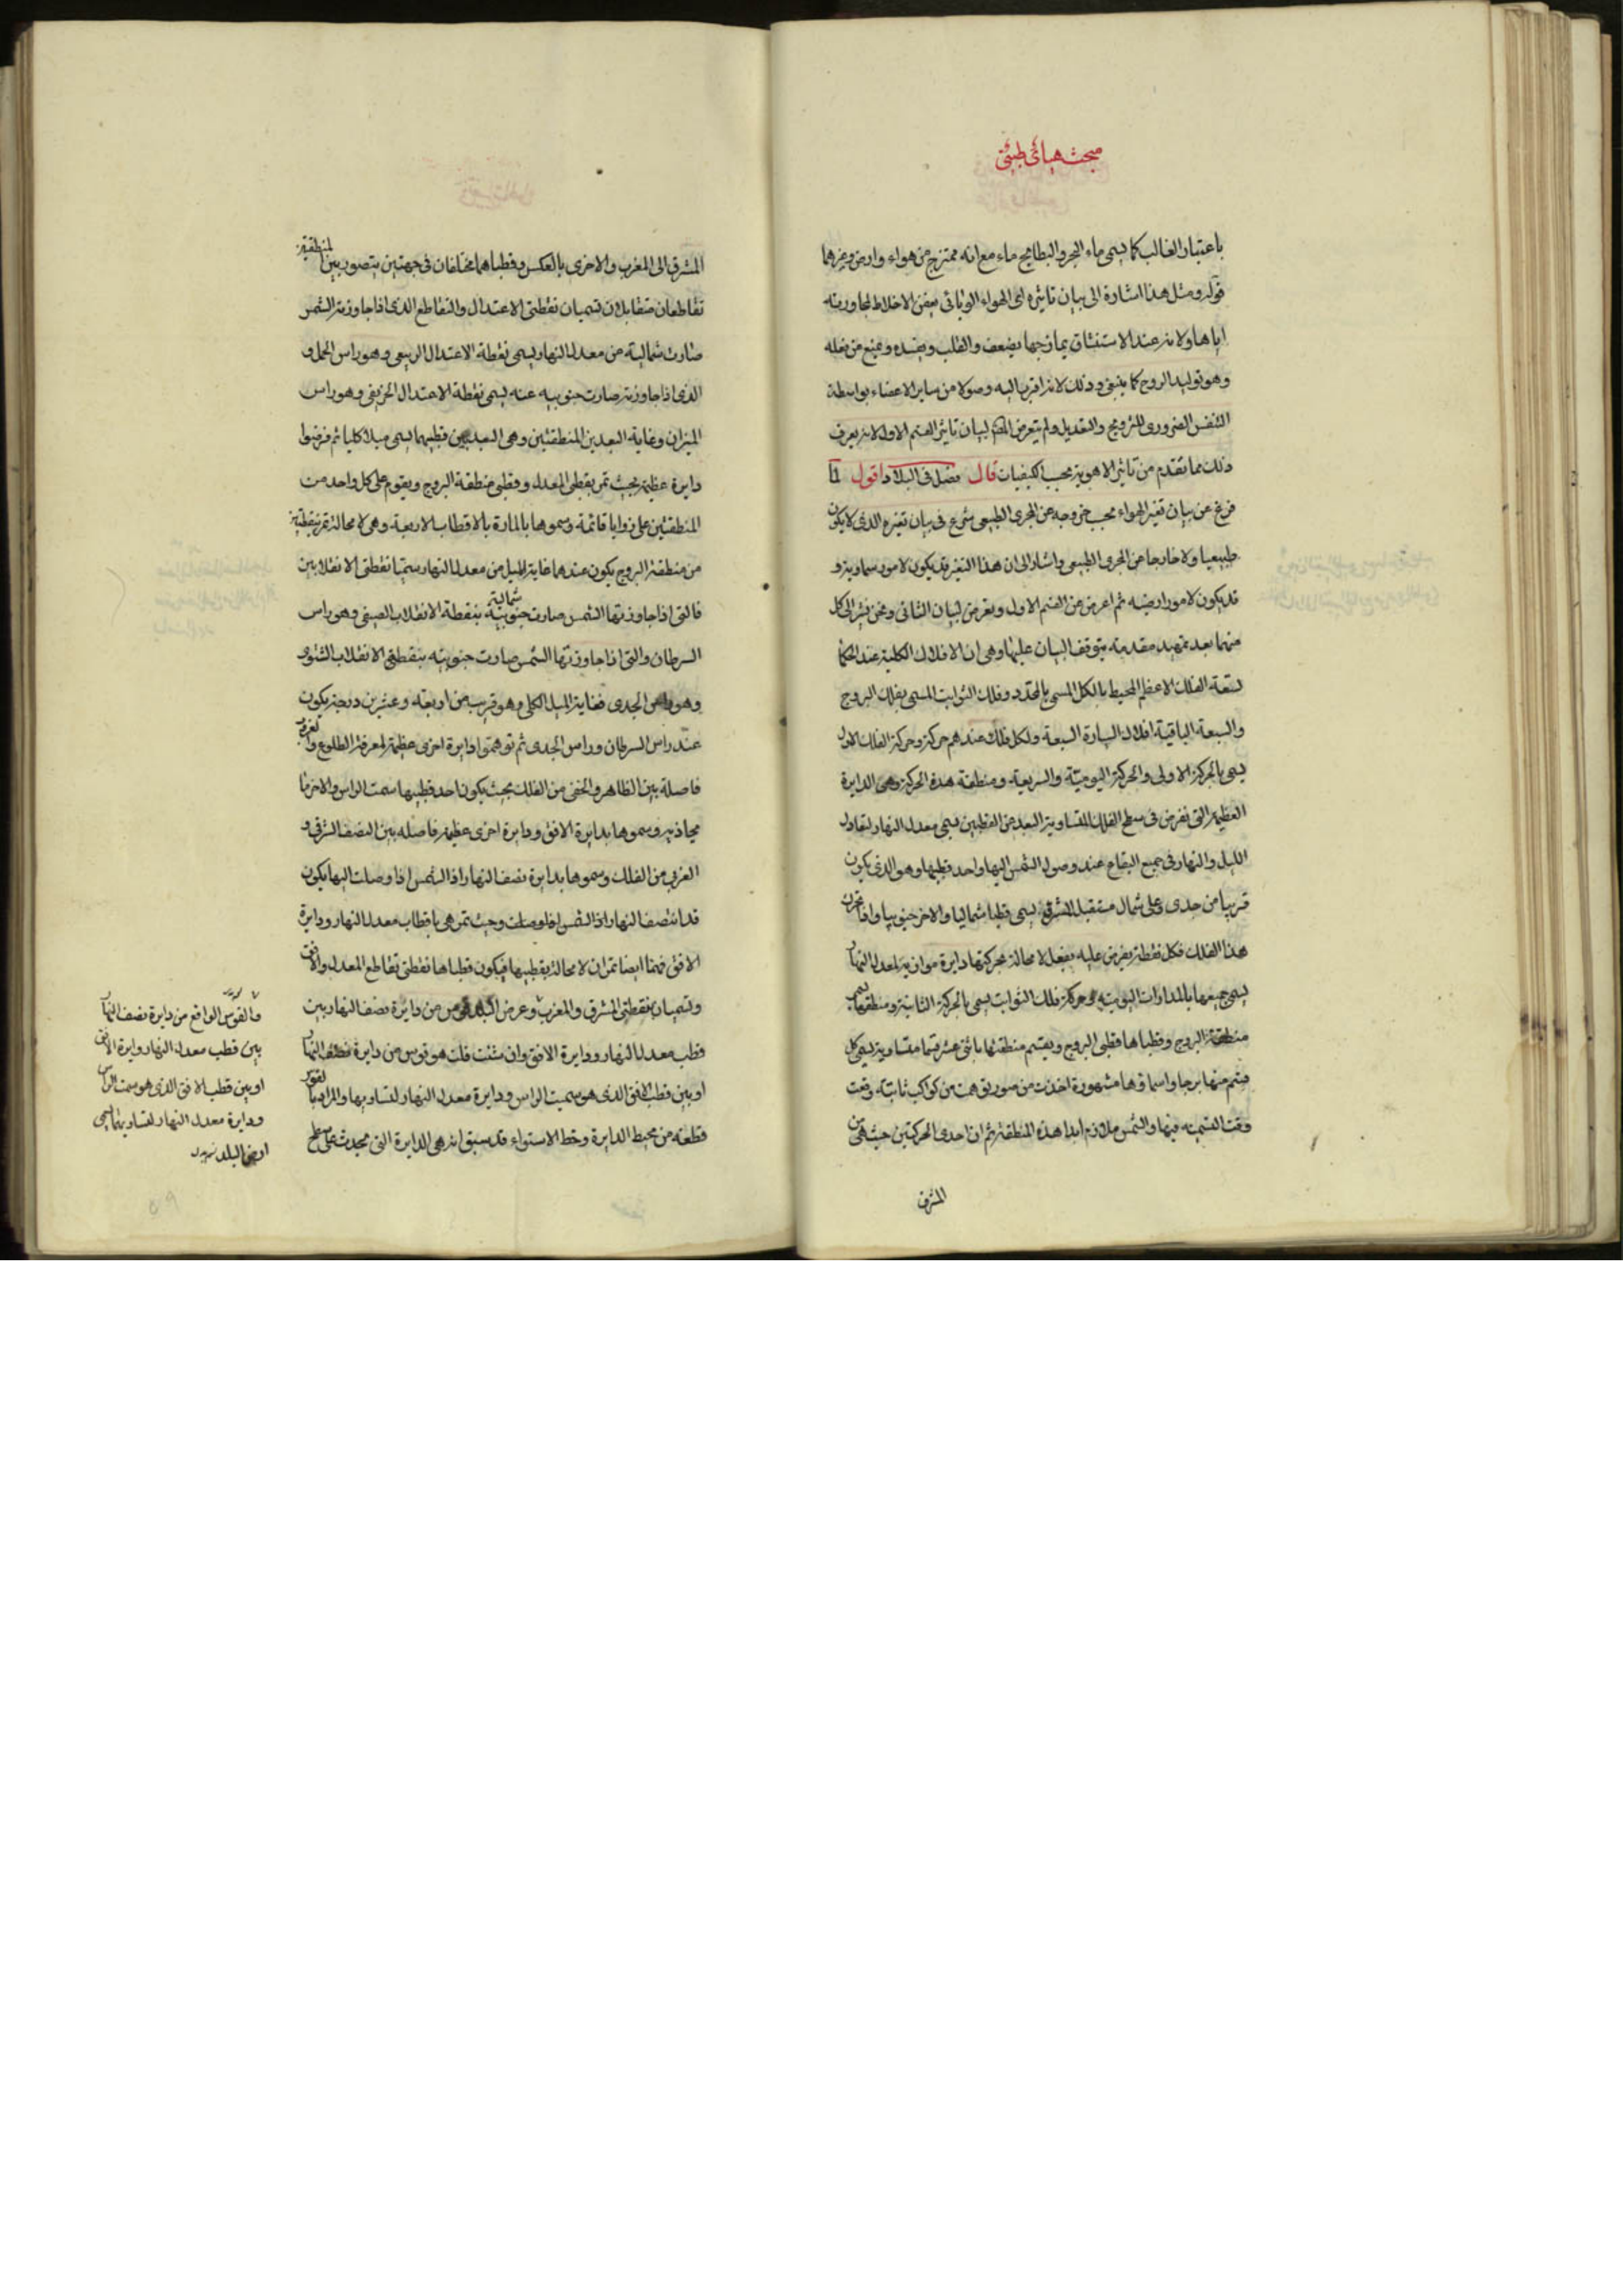 مبحث هيائى طبيعى
باعتبار الغالب كما يسمى ماء البحر والبطايح ماء مع انه ممتزج من هواء وارض وغيرهما
قوله ومثل هذا اشارة الى بيان تاثيره اى الهواء الوبائى يعفن الاخلاط لمجاورته
اياها ولانه عند الاستنشاق يمازجها يضعف والقلب ويفسده ويمنع من فعله
وهو توليد الروح كما ينبغى وذلك لانه اقرب اليه وصولا من ساير الاعضاء بواسطة
التنفس الضرورى للترويح والتعديل ولم يتعرض المص لبيان تاثير القسم الاول لانه يعرف
ذلك مما تقدم من تاثير الاهوية بحسب الكيفيات قال فصل فى البلاد اقول لما
فرغ عن بيان تغير الهواء بحسب خروجه عن المجرى الطبيعى شرع فى بيان تغيره الذى لا يكون
طبيعيا ولا خارجا عن المجرى الطبيعى واشار الى ان هذا التغير قد يكون لامور سماوية و
قد يكون لامور ارضية ثم اعرض عن القسم الاول وتعرض لبيان الثانى ونحن نشير الى كل
منهما بعد تمهيد مقدمة يتوقف البيان عليها وهى ان الافلاك الكلية عند الحكماء
تسعة الفلك الاعظم المحيط بالكل المسمى بالمحدد وفلك الثوابت المسمى بفلك البروج
والسبعة الباقية افلاك السيارة السبعة ولكل فلك عندهم حركة وحركة الفلك الاول
يسمى بالحركة الاولى والحركة اليومية والسريعة ومنطقة هذه الحركة وهى الدايرة
العظيمة التى تفرض فى سطح الفلك المتساوية البعد عن القطبين تسمى معدل النهار لتعادل
الليل والنهار فى جميع البقاع عند وصول الشمس اليها واحد قطبيها وهو الذى يكون
قريبا من جدى وعلى شمال مستقبل المشرق يسمى قطبا شماليا والاخر جنوبيا واذا تحرك
هذا الفلك فكل نقطة يفرض عليه يفعل لا محالة بحركتها دايرة موازية لمعدل النهار
يسمى جميعها بالمدارات اليومية وحركة فلك الثوابت يسمى بالحركة الثانية ومنطقتها يسمى
منطقة البروج وقطباها قطبى البروج ويقسم منطقتها باثنى عشر قسما متساوية يسمى كل
قسم منها برجا واسماؤها مشهورة اخذت من صور توهمت من كواكب ثابتة وقعت
وقت التسمية فيها والشمس ملازم ابدا هذه المنطقة ثم ان احدى الحركتين حيث هى من
المشرق
المشرق الى المغرب والاخرى بالعكس وقطباهما مختلفان فى جهتين يتصور بين المنطقتين
تقاطعان متقابلان تسميان نقطتى الاعتدال والتقاطع الذى اذا جاوزته الشمس
صارت شمالية من معدل النهار يسمى نقطة الاعتدال الربيعى وهو راس الحمل و
الذى اذا جاوزته صارت جنوبيه عنه يسمى نقطة الاعتدال الخريفى وهو راس
الميزان وغاية البعد بين المنطقتين وهى البعد بين قطبيهما يسمى ميلا كليا ثم فرضوا
دايرة عظيمة بحيث تمر بقطبى المعدل وقطبى منطقة البروج ويقوم على كل واحد من
المنطقتين على زوايا قائمة وسموها بالمارة بالاقطاب الاربعة وهى لا محالة تمر بنقطتين
من منطقة البروج يكون عندهما غاية الميل من معدل النهار سميتا نقطتى الانقلابين
فالتى اذا جاوزتها الشمس صارت جنوبية شمالية بنقطة الانقلاب الصيفى وهو راس
السرطان والتى اذا جاوزتها الشمس صارت جنوبيه بنقطتى الانقلاب الشتوى
وهو راس الجدى فغاية الميل الكلى وهو قريب من اربعة وعشرين درجة يكون
عند راس السرطان وراس الجدى ثم توهموا دايرة اخرى عظيمة لمعرفة الطلوع والغروب
فاصلة بين الظاهر والخفى من الفلك بحيث يكون احد قطبيها سمت الراس والاخر ما
يحاذيه وسموها بدايرة الافق ودايرة اخرى عظيمة فاصله بين النصف الشرقى و
الغربى من الفلك وسموها بدايرة نصف النهار اذ الشمس اذا وصلت اليها يكون
قد انتصف النهار اذ الشمس وحيث تمر هى باقطاب معدل النهار ودايرة
الافق فهما ايضا تمران لا محالة بقطبيها فيكون قطباها نقطتى تقاطع المعدل والافق
وتسميان بنقطتى المشرق والمغرب وعرض البلد قوس من دايرة نصف النهار بين
قطب معدل النهار ودايرة الافق وان شئت قلت هو قوس من دايرة نصف النهار
او بين قطب الافق الذى هو سميت الراس ودايرة معدل النهار لتساويها والمراد بالقوس
قطعة من محيط الدايرة وخط الاستواء قد سبق انه هى الدايرة التى تحدث على سطح
فالقوس الواقع من دايرة نصف النهار
بين قطب معدل النهار ودايرة الافق
او بين قطب الافق الذى هو سمت الراس
ودايرة معدل النهار لتساويهما يسمى
البلد